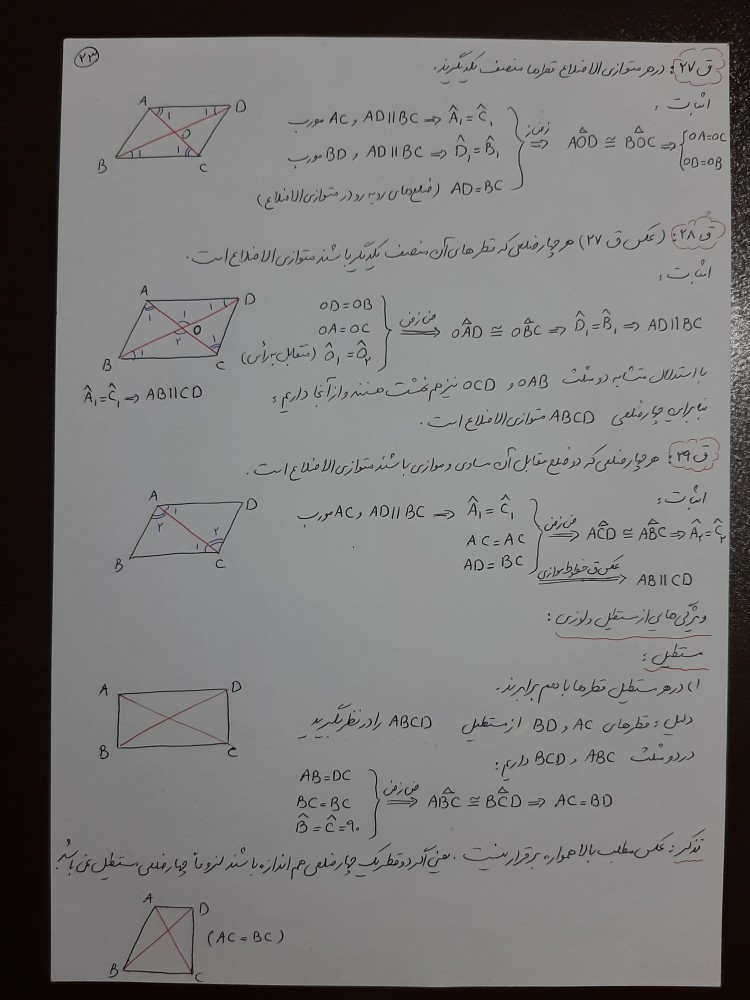 ۲۳
ق ۲۷: در هر متوازی الاضلاع قطرها منصف یکدیگرند.
اثبات:
A D O B C 1 1 1 1
AC و AD || BC مورب ⇒ Â₁ = Ĉ₁
BD و AD || BC مورب ⇒ D̂₁ = B̂₁
AD = BC (ضلع‌های رو به رو در متوازی الاضلاع)
} ز ض ز ⇒ AOD ≅ BOC ⇒ { OA = OC
OD = OB
ق ۲۸: (عکس ق ۲۷) هر چهارضلعی که قطرهای آن منصف یکدیگر باشند متوازی الاضلاع است.
اثبات:
A D O B C 1 1 1 1 1 2
OD = OB
OA = OC
Ô₁ = Ô₂ (متقابل به رأس)
} ض ز ض ⇒ OAD ≅ OBC ⇒ D̂₁ = B̂₁ ⇒ AD || BC
با استدلال متشابه دو مثلث OAB و OCD نیز هم نهشت هستند و از آنجا داریم: Â₁ = Ĉ₁ ⇒ AB || CD
بنابراین چهارضلعی ABCD متوازی الاضلاع است.
ق ۲۹: هر چهارضلعی که دو ضلع مقابل آن مساوی و موازی باشند متوازی الاضلاع است.
اثبات:
A D B C 1 ۲ 1 ۲
AC و AD || BC مورب ⇒ Â₁ = Ĉ₁
AC = AC
AD = BC
} ض ز ض ⇒ ACD ≅ ABC ⇒ Â₂ = Ĉ₂
عکس ق خطوط موازی ⇒ AB || CD
ویژگی هایی از مستطیل و لوزی:
مستطیل:
۱) در هر مستطیل قطرها با هم برابرند.
A D B C
دلیل: قطرهای AC و BD از مستطیل ABCD را در نظر بگیرید
در دو مثلث ABC و BCD داریم:
AB = DC
BC = BC
B̂ = Ĉ = ۹۰
} ض ز ض ⇒ ABC ≅ BCD ⇒ AC = BD
تذکر: عکس مطلب بالا همواره برقرار نیست. یعنی اگر دو قطر یک چهارضلعی هم اندازه باشند لزوماً چهارضلعی مستطیل نمی باشد.
A D B C
(AC = BC)